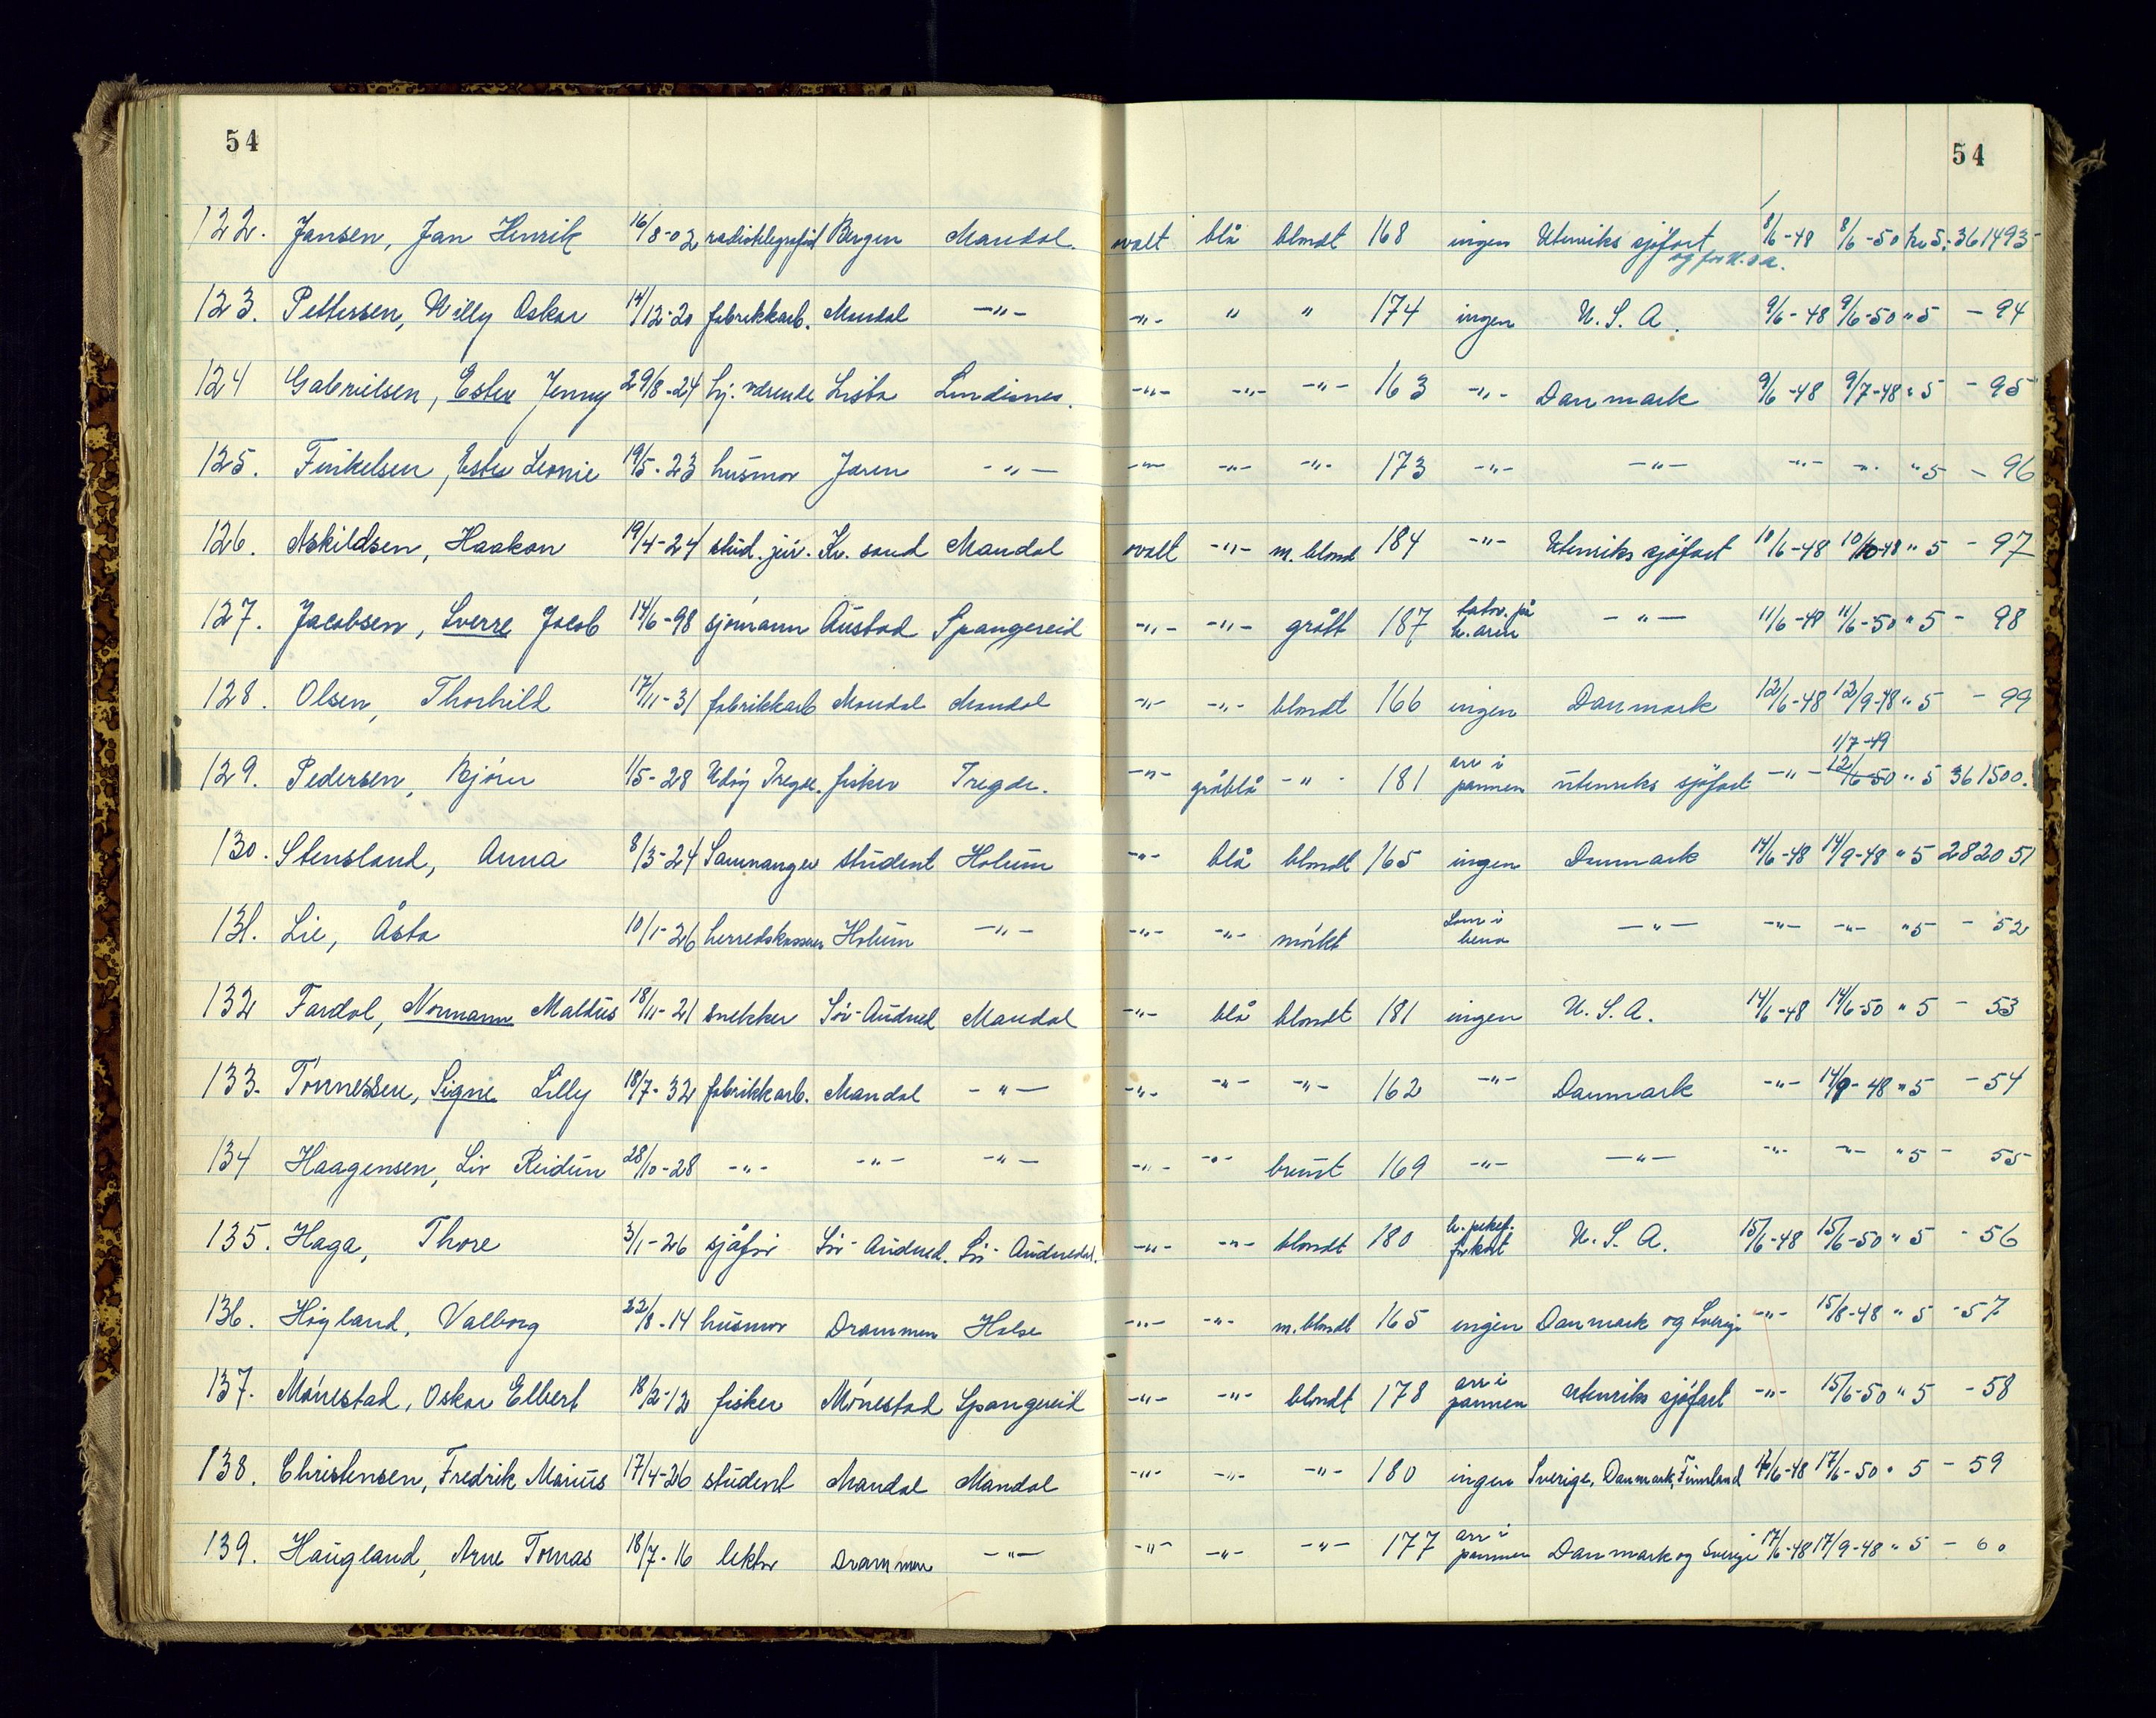 54 54
122. Jansen, Jan Henrik 16/8-02 radiotelegrafist Bergen Mandal. ovalt blå blondt 168 ingen Utenriks sjöfart 8/6-48 8/6-50 kr 5,- 361493
og for U.S.A.
123. Pettersen, Willy Oskar 14/12-20 fabrikkarb. Mandal -"- -"- " " 174 ingen U.S.A. 9/6-48 9/6-50 " 5 - 94
124 Gabrielsen, Ester Jenny 29/8-24 hj. værende Lista Lindisnes. -"- -"- -"- 163 -"- Danmark 9/6-48 9/7-48 " 5 - 95
125. Finkelsen, Ester Leonie 19/5-23 husmor Jaren -"- -"- -"- -"- 173 -"- -"- -"- -"- " 5 - 96
126. Askildsen, Haakon 19/4-24 stud. jur. Kr. sand Mandal ovalt -"- m. blond 184 -"- Utenriks sjöfart 10/6-48 10/10-48 " 5 - 97
127. Jacobsen, Sverre Jacob 14/6-98 sjömann Austad Spangereid -"- -"- grått 187 tatov. på h. arm -"- 11/6-48 11/6-50 " 5 - 98
128. Olsen, Thorhild 17/11-31 fabrikkarb Mandal Mandal -"- -"- blondt 166 ingen Danmark 12/6-48 12/9-48 " 5 - 99
1/7-49
129. Pedersen, Björn 1/5-28 Udöy Tregde. fisker Tregde. -"- gråblå -"- 181 arr i pannen utenriks sjöfart -"- 12/6-50 " 5 361500.
130. Stensland, Anna 8/3-24 Samnanger student Holum -"- blå blondt 165 ingen Danmark 14/6-48 14/9-48 " 5 282051
131. Lie, Åsta 10/1-26 herredskasserer Holum -"- -"- -"- mörkt Lam i bena -"- -"- -"- " 5 - 52
132 Fardal, Normann Maldus 18/11-21 snekker Sör-Audned Mandal -"- blå blondt 181 ingen U.S.A. 14/6-48 14/6-50 " 5 - 53
133. Tönnessen, Signe Lilly 18/7-32 fabrikkarb. Mandal -"- -"- -"- -"- 162 -"- Danmark -"- 14/9-48 " 5 - 54
134 Haagensen, Liv Reidun 28/10-28 -"- -"- -"- -"- -"- brunt 169 -"- -"- -"- -"- " 5 - 55
135. Haga, Thore 3/1-26 sjåför Sör-Audned. Sör-Audnedal. -"- -"- blondt 180 h. pekef. forkort U.S.A. 15/6-48 15/6-50 " 5 - 56
136. Högland, Valborg 22/8-14 husmor Drammen Halse -"- -"- m. blondt 165 ingen Danmark og Sverige -"- 15/8-48 " 5 - 57
137. Mönestad, Oskar Elbert 18/2-12 fisker Mönestad Spangereid -"- -"- blondt 178 arr i pannen Utenriks sjöfart -"- 15/6-50 " 5 - 58
138. Christensen, Fredrik Marius 17/4-26 student Mandal Mandal -"- -"- -"- 180 ingen Sverige, Danmark, Finnland 17/6-48 17/6-50 " 5 - 59
139. Haugland, Arne Tomas 18/7-16 lektor Drammen -"- -"- -"- -"- 177 arr i pannen Danmark og Sverige 17/6-48 17/9-48 " 5 - 60